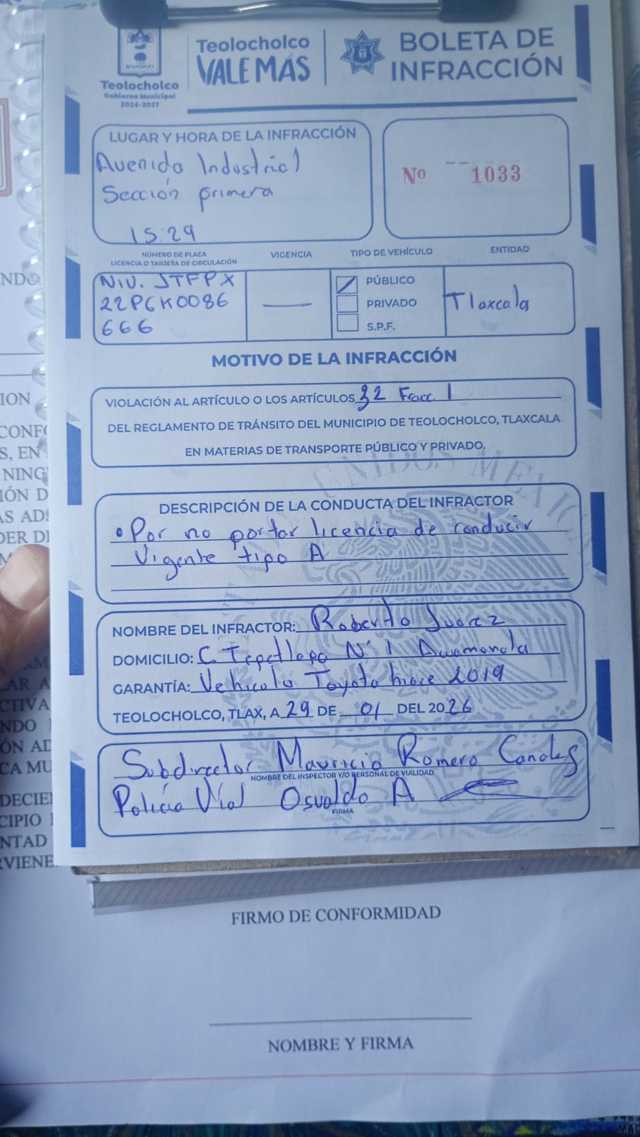 Teolocholco
Gobierno Municipal
2024-2027
Teolocholco
VALE MÁS
BOLETA DE
INFRACCIÓN
LUGAR Y HORA DE LA INFRACCIÓN
Avenida Industrial
Sección primera
15:29
Nº 1033
NÚMERO DE PLACA
LICENCIA O TARJETA DE CIRCULACIÓN
VIGENCIA
TIPO DE VEHÍCULO
ENTIDAD
NIV. JTFPX
22P6K0086
666
PÚBLICO
PRIVADO
S.P.F.
Tlaxcala
MOTIVO DE LA INFRACCIÓN
VIOLACIÓN AL ARTÍCULO O LOS ARTÍCULOS 32 Fracc I
DEL REGLAMENTO DE TRÁNSITO DEL MUNICIPIO DE TEOLOCHOLCO, TLAXCALA
EN MATERIAS DE TRANSPORTE PÚBLICO Y PRIVADO.
DESCRIPCIÓN DE LA CONDUCTA DEL INFRACTOR
• Por no portar licencia de conducir
Vigente tipo A
NOMBRE DEL INFRACTOR: Roberto Juarez
DOMICILIO: C Tepetlapa Nº 1 Acuamanala
GARANTÍA: Vehiculo Toyota hiace 2019
TEOLOCHOLCO, TLAX, A 29 DE 01 DEL 2026
Subdirector Mauricio Romero Canales
NOMBRE DEL INSPECTOR Y/O PERSONAL DE VIALIDAD
Policía Vial Osvaldo A
FIRMA
FIRMO DE CONFORMIDAD
NOMBRE Y FIRMA